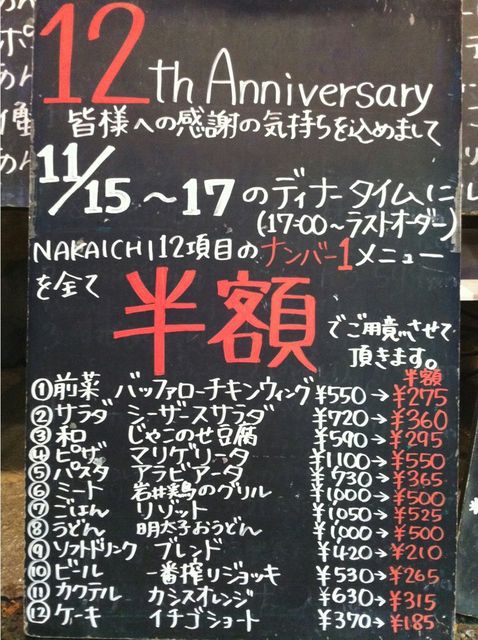 12th Anniversary
皆様への感謝の気持ちを込めまして
11/15～17のディナータイムに
(17:00～ラストオーダー)
NAKAICHI12項目のナンバー1メニュー
を全て
半額
でご用意させて
頂きます。
半額
①前菜 バッファローチキンウィング ¥550→¥275
②サラダ シーザースサラダ ¥720→¥360
③和 じゃこのせ豆腐 ¥590→¥295
④ピザ マリゲリータ ¥1,100→¥550
⑤パスタ アラビアータ ¥730→¥365
⑥ミート 岩井鶏のグリル ¥1,000→¥500
⑦ごはん リゾット ¥1,050→¥525
⑧うどん 明太子おうどん ¥1,000→¥500
⑨ソフトドリンク ブレンド ¥420→¥210
⑩ビール 一番搾りジョッキ ¥530→¥265
⑪カクテル カシスオレンジ ¥630→¥315
⑫ケーキ イチゴショート ¥370→¥185